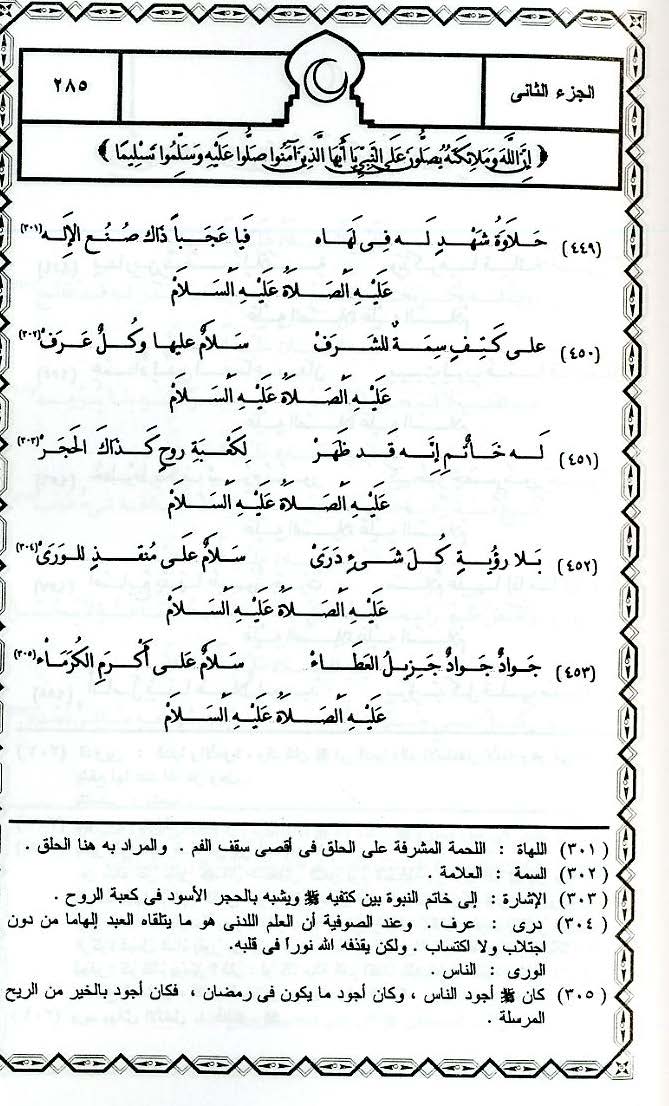 الجزء الثانى
٢٨٥
﴿ إِنَّ اللَّهَ وَمَلَائِكَتَهُ يُصَلُّونَ عَلَى النَّبِيِّ يَا أَيُّهَا الَّذِينَ آمَنُوا صَلُّوا عَلَيْهِ وَسَلِّمُوا تَسْلِيمًا ﴾
(٤٤٩) حَلَاوَةُ شَهْدٍ لَهُ فِى لَهَاهْ فَيَا عَجَباً ذَاكَ صُنْعُ الإِلَه(٣٠١)
عَلَيْهِ الصَّلَاةُ عَلَيْهِ السَّلَامْ
(٤٥٠) على كَتِفٍ سِمَةٌ للشَّرَفْ سَلَامٌ عليها وكُلٌّ عَرَفْ(٣٠٢)
عَلَيْهِ الصَّلَاةُ عَلَيْهِ السَّلَامْ
(٤٥١) لَهُ خَاتَمٌ إِنَّه قد ظَهَرْ لِكَعْبَةِ روحٍ كَذَاكَ الحَجَرْ(٣٠٣)
عَلَيْهِ الصَّلَاةُ عَلَيْهِ السَّلَامْ
(٤٥٢) بَلا رؤْيةٍ كُلَّ شَىْءٍ دَرَىْ سَلَامٌ عَلَى مُنقذٍ للوَرَىْ(٣٠٤)
عَلَيْهِ الصَّلَاةُ عَلَيْهِ السَّلَامْ
(٤٥٣) جَوادٌ جَوادٌ جَزِيلُ العَطَاءْ سَلَامٌ عَلى أَكْرَمِ الكُرَمَاءْ(٣٠٥)
عَلَيْهِ الصَّلَاةُ عَلَيْهِ السَّلَامْ
(٣٠١) اللهاة : اللحمة المشرفة على الحلق فى أقصى سقف الفم . والمراد به هنا الحلق .
(٣٠٢) السمة : العلامة .
(٣٠٣) الإشارة : إلى خاتم النبوة بين كتفيه ﷺ ويشبه بالحجر الأسود فى كعبة الروح .
(٣٠٤) درى : عرف . وعند الصوفية أن العلم اللدنى هو ما يتلقاه العبد إلهاما من دون
اجتلاب ولا اكتساب . ولكن يقذفه الله نوراً فى قلبه.
الورى : الناس .
(٣٠٥) كان ﷺ أجود الناس ، وكان أجود ما يكون فى رمضان ، فكان أجود بالخير من الريح
المرسلة .